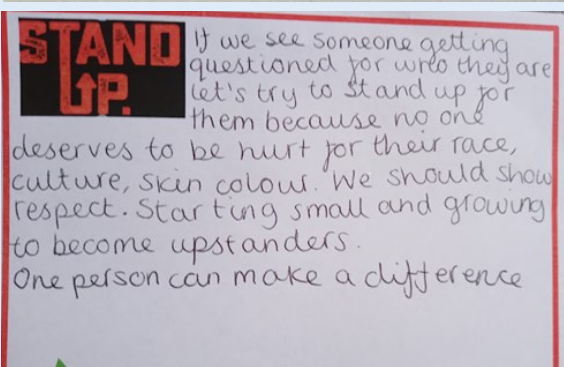 STAND
UP.
If we see someone getting
questioned for who they are
let's try to stand up for
them because no one
deserves to be hurt for their race,
culture, skin colour. We should show
respect. Starting small and growing
to become upstanders.
One person can make a difference